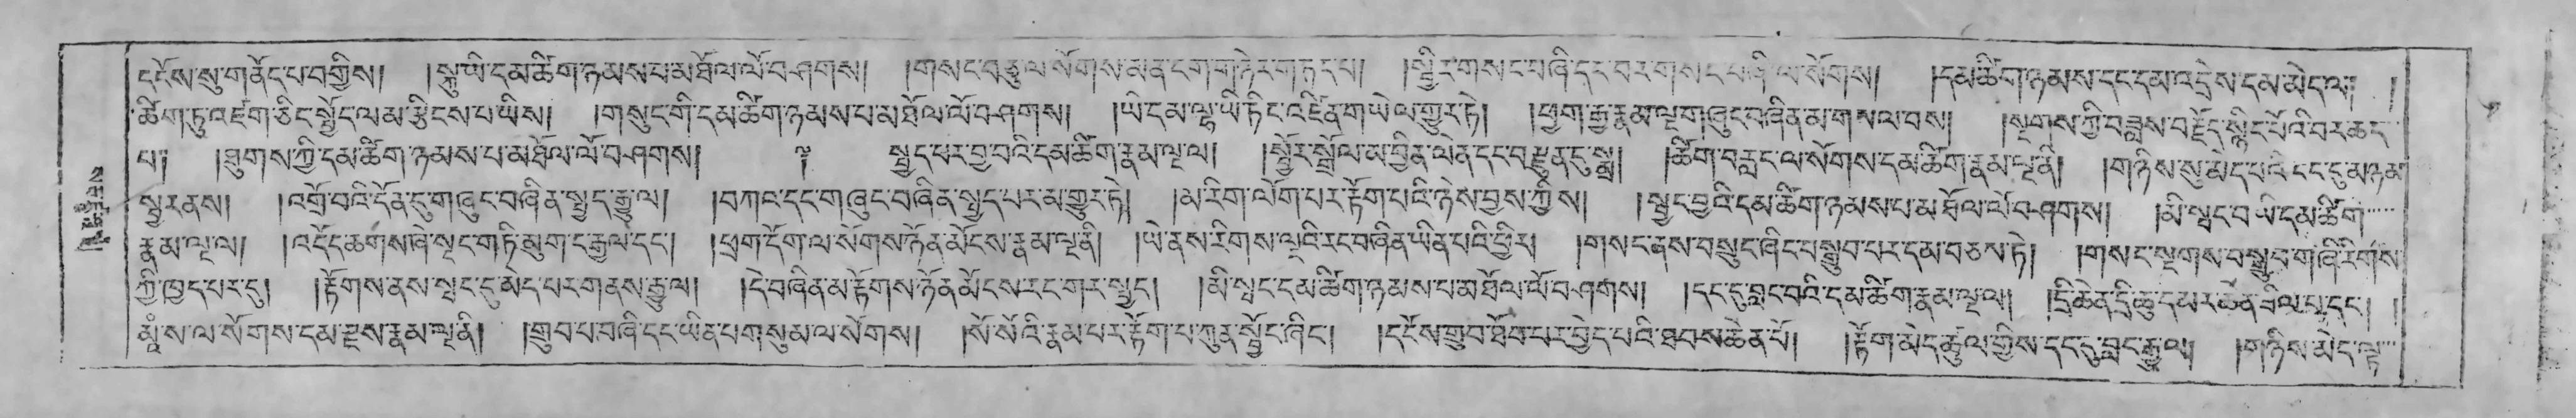 དངོས་སུ་གནོད་པ་བགྱིས། །སྐུ་ཡི་དམ་ཚིག་ཉམས་པ་མཐོལ་ལོ་བཤགས། །གསང་བརྟུལ་སོགས་མན་ངག་གཉེར་གཏད་པ། །སྤྱིར་གསང་བཞི་དང་བར་གསང་བཞི་ལ་སོགས། །དམ་ཚིག་ཉམས་དང་དམ་འདྲེས་དམ་མེད་ལ། །
ཚིག་ཏུ་འཛག་ཅིང་སྤྱོད་ལམ་རྩིངས་པ་ཡིས། །གསུང་གི་དམ་ཚིག་ཉམས་པ་མཐོལ་ལོ་བཤགས། །ཡི་དམ་ལྷ་ཡི་ཏིང་འཛིན་གཡེལ་གྱུར་ཏེ། །ཕྱག་རྒྱ་རྣམ་ལྔ་གཞུང་བཞིན་མ་གསལ་བས། །སྔགས་ཀྱི་བཟླས་བརྗོད་སྙིང་པོའི་བར་ཆད་
པ། །ཐུགས་ཀྱི་དམ་ཚིག་ཉམས་པ་མཐོལ་ལོ་བཤགས། ༈ སྤྱད་པར་བྱ་བའི་དམ་ཚིག་རྣམ་ལྔ་ལ། །སྦྱོར་སྒྲོལ་མ་བྱིན་ལེན་དང་བརྫུན་དུ་སྨྲ། །ཚིག་བརླང་ལ་སོགས་དམ་ཚིག་རྣམ་ལྔ་ནི། །གཉིས་སུ་མེད་པའི་ངང་དུ་མཉམ་
སྦྱར་ནས། །འགྲོ་བའི་དོན་དུ་གཞུང་བཞིན་སྤྱད་རྒྱུ་ལ། །བཀའ་དང་གཞུང་བཞིན་སྤྱད་པར་མ་གྱུར་ཏེ། །མ་རིག་ལོག་པར་རྟོག་པའི་ཉེས་བྱས་ཀྱིས། །སྤྱད་བྱའི་དམ་ཚིག་ཉམས་པ་མཐོལ་ལོ་བཤགས། །མི་སྤང་བ་ཡི་དམ་ཚིག་
རྣམ་ལྔ་ལ། །འདོད་ཆགས་ཞེ་སྡང་གཏི་མུག་ང་རྒྱལ་དང་། །ཕྲག་དོག་ལ་སོགས་ཉོན་མོངས་རྣམ་ལྔ་ནི། །ཡེ་ནས་རིགས་ལྔའི་རང་བཞིན་ཡིན་པའི་ཕྱིར། །གསང་ནས་བསྲུང་ཞིང་བསྒྲུབ་པར་དམ་བཅས་ཏེ། །གསང་སྔགས་བསྒྲུབ་གཞི་རིགས་
ཀྱི་ཁྱད་པར་དུ། །རྟོགས་ནས་སྤང་དུ་མེད་པར་གནས་རྒྱུ་ལ། །དེ་བཞིན་མ་རྟོགས་ཉོན་མོངས་རང་གར་སྤྱད། །མི་སྤང་དམ་ཚིག་ཉམས་པ་མཐོལ་ལོ་བཤགས། །དང་དུ་བླང་བའི་དམ་ཚིག་རྣམ་ལྔ་ལ། །དྲི་ཆེན་དྲི་ཆུ་དམར་ཆེན་ཤ་ཆེན་དང་། །
མཱཾ་ས་ལ་སོགས་དམ་རྫས་རྣམ་ལྔ་ནི། །གྲུབ་པ་བཞི་དང་ཡིན་པ་གསུམ་ལ་སོགས། །སོ་སོའི་རྣམ་པར་རྟོག་པ་ཀུན་སྦྱོང་ཞིང་། །དངོས་གྲུབ་ཐོབ་པར་བྱེད་པའི་ཐབས་ཆེན་པོ། །རྟོག་མེད་ཚུལ་གྱིས་དང་དུ་བླང་རྒྱུ་ལ། །གཉིས་མེད་ལྟ་